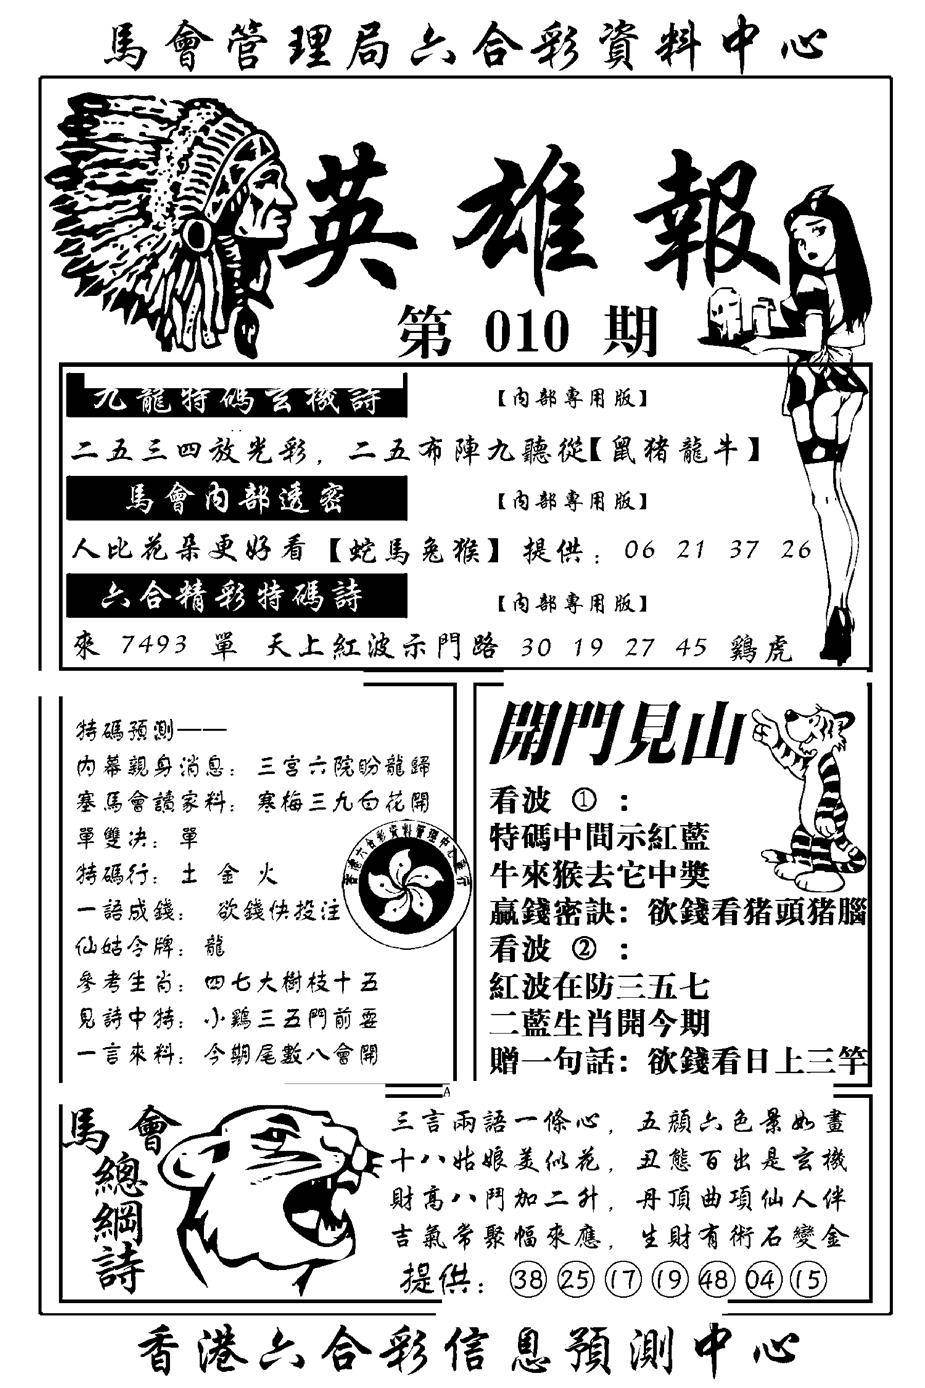 馬會管理局六合彩資料中心
英雄報
第 010 期
九龍特碼玄機詩 【內部專用版】
二五三四放光彩，二五布陣九聽從【鼠猪龍牛】
馬會內部透密 【內部專用版】
人比花朵更好看【蛇馬兔猴】 提供：06 21 37 26
六合精彩特碼詩 【內部專用版】
來 7493 單 天上紅波示門路 30 19 27 45 鷄虎
特碼預測——
內幕親身消息：三宮六院盼龍歸
塞馬會讀家料：寒梅三九白花開
單雙决：單
特碼行：土 金 火
一語成錢： 欲錢快投注
仙姑令牌：龍
參考生肖：四七大樹枝十五
見詩中特：小鷄三五門前耍
一言來料：今期尾數八會開
開門見山
看波 ①：
特碼中間示紅藍
牛來猴去它中奬
贏錢密訣：欲錢看猪頭猪腦
看波 ②：
紅波在防三五七
二藍生肖開今期
贈一句話：欲錢看日上三竿
A
馬會
總綱詩
三言兩語一條心，五顏六色景如畫
十八姑娘美似花，丑態百出是玄機
財高八鬥加二升，丹頂曲項仙人伴
吉氣常聚幅來應，生財有術石變金
提供：38 25 17 19 48 04 15
香港六合彩信息預測中心